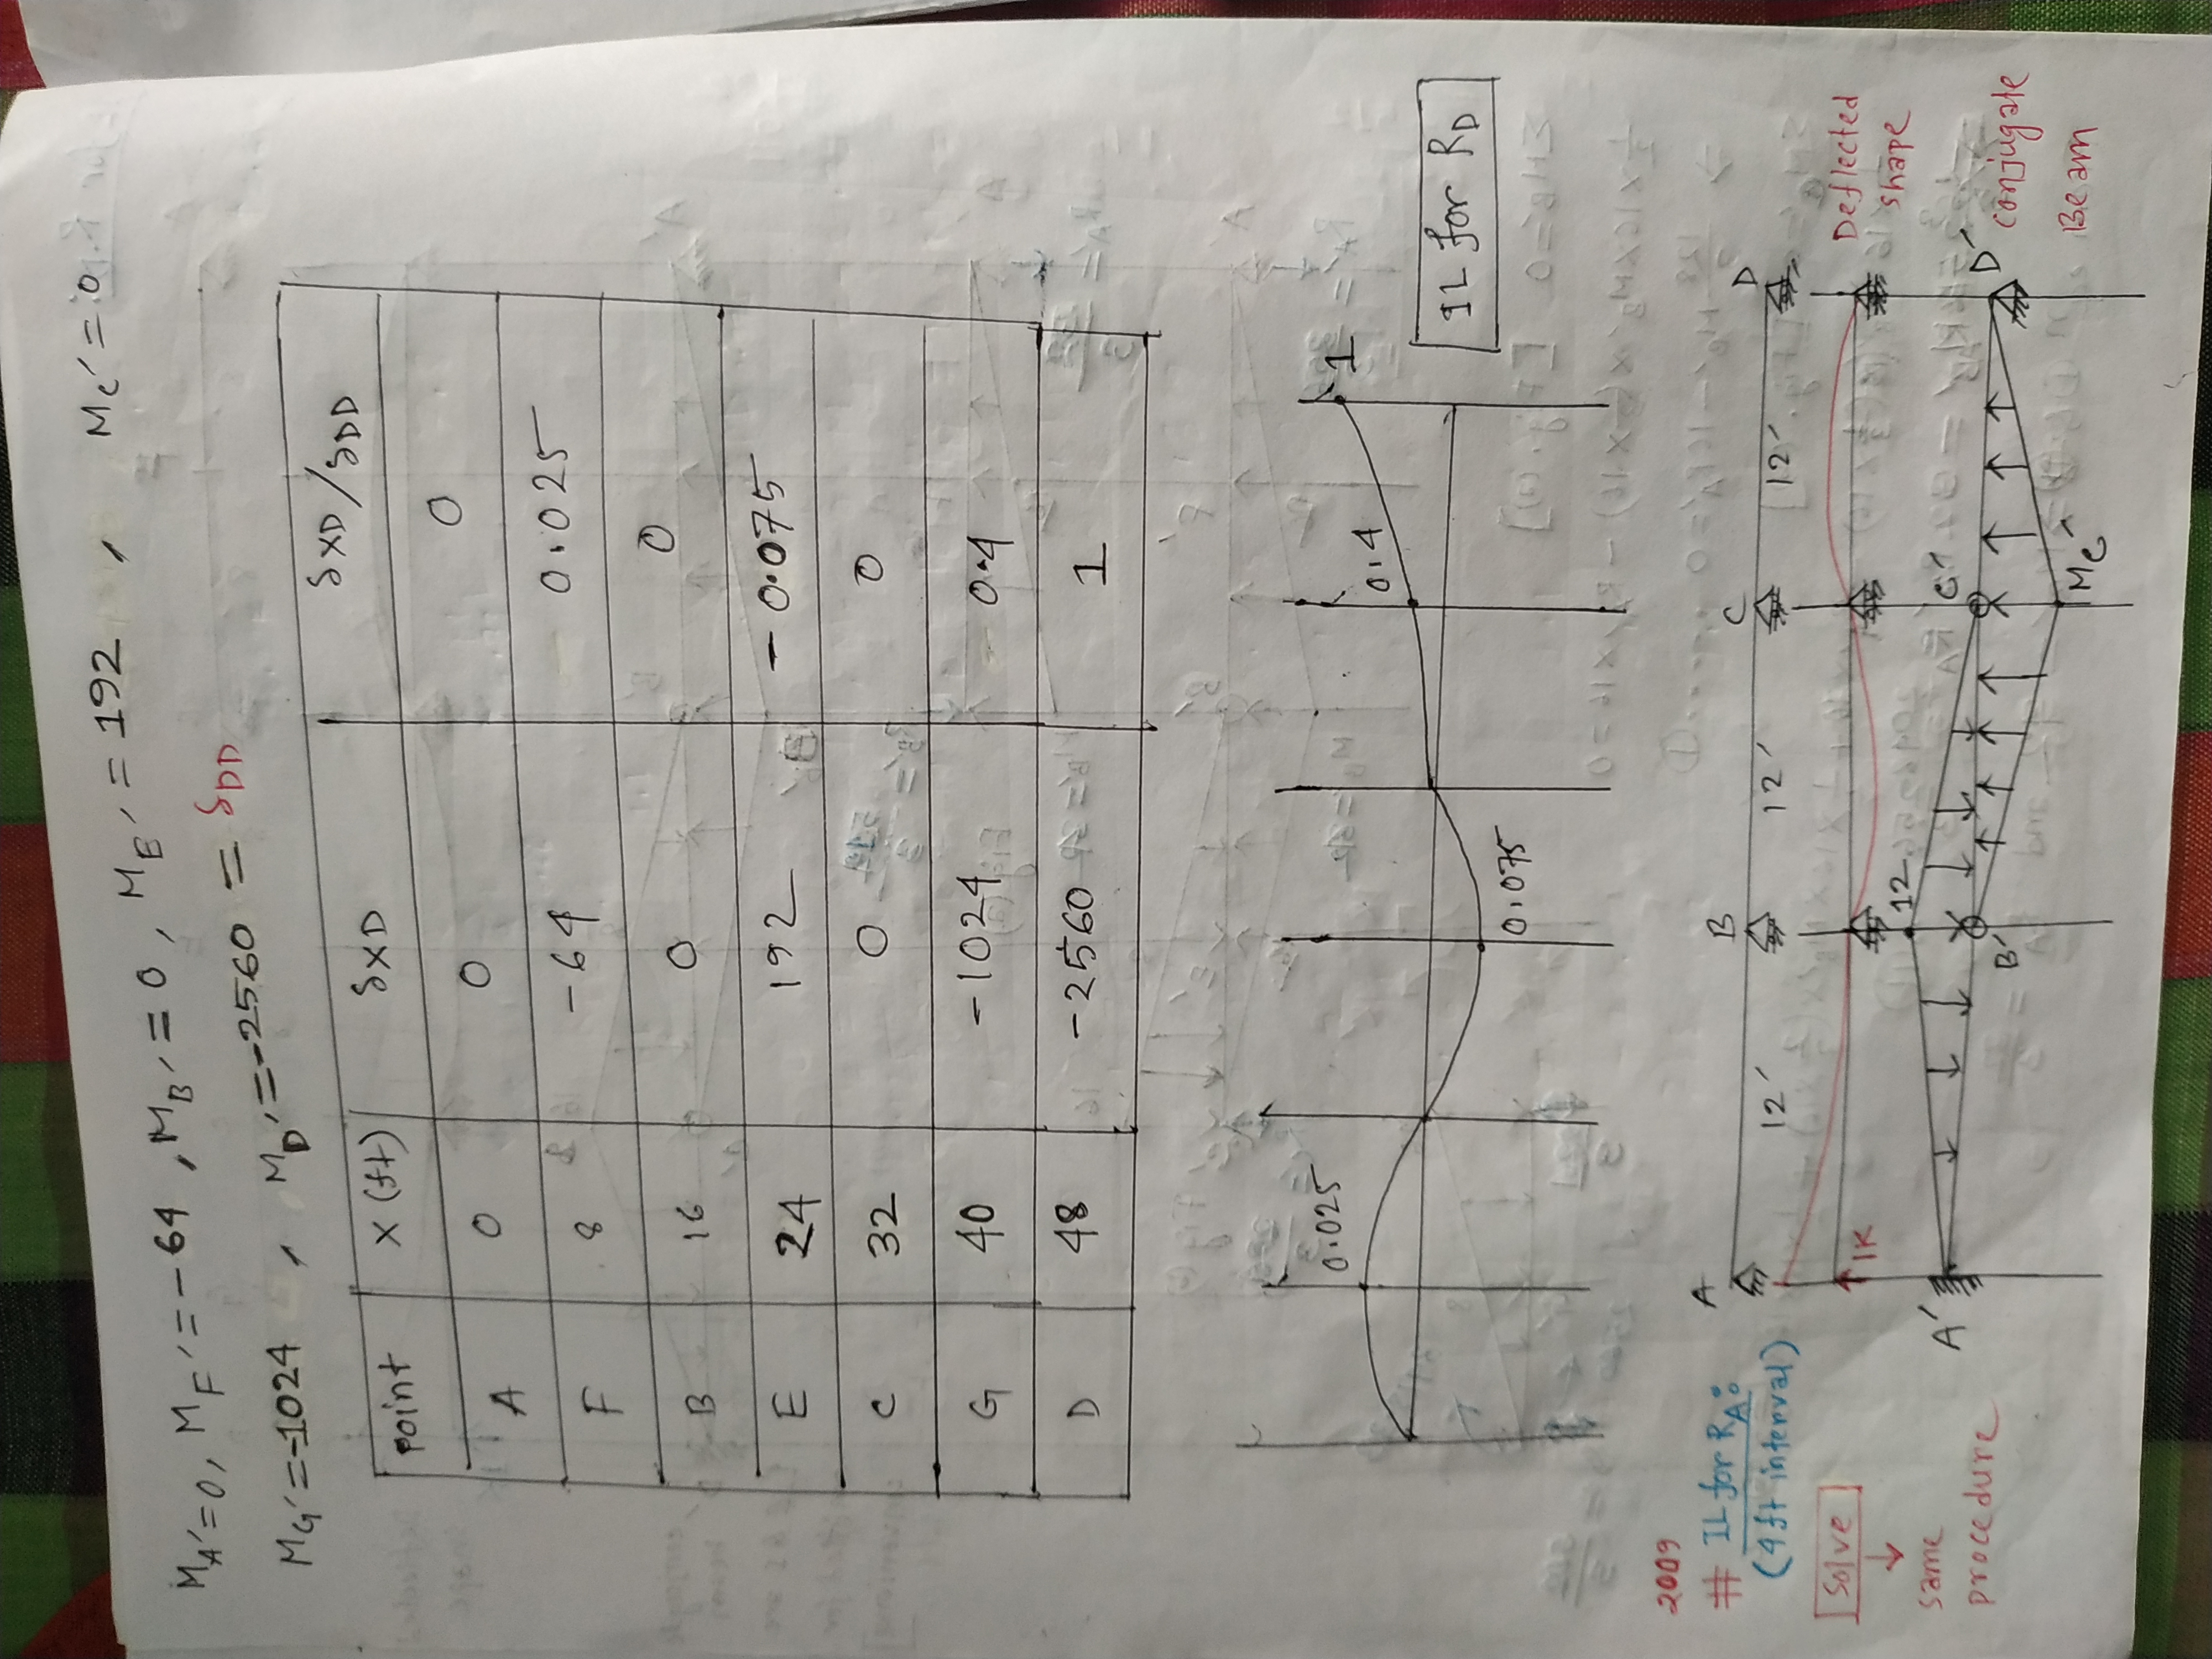 MA′=0, MF′=-64, MB′=0, ME′=192, Mc′=0
MG′=-1024, MD′=-2560 = δDD
point X(ft) δXD δXD/δDD
A 0 0 0
F 8 -64 0.025
B 16 0 0
E 24 192 -0.075
C 32 0 0
G 40 -1024 0.4
D 48 -2560 1
0.025 0.075 0.4 1
IL for RD
2009
# IL for RA:
(4ft interval)
Solve
↓
same
procedure
A B C D
12′ 12′ 12′
1K
Deflected
shape
12
A′ B′ C′ D′
Mc′
conjugate
Beam